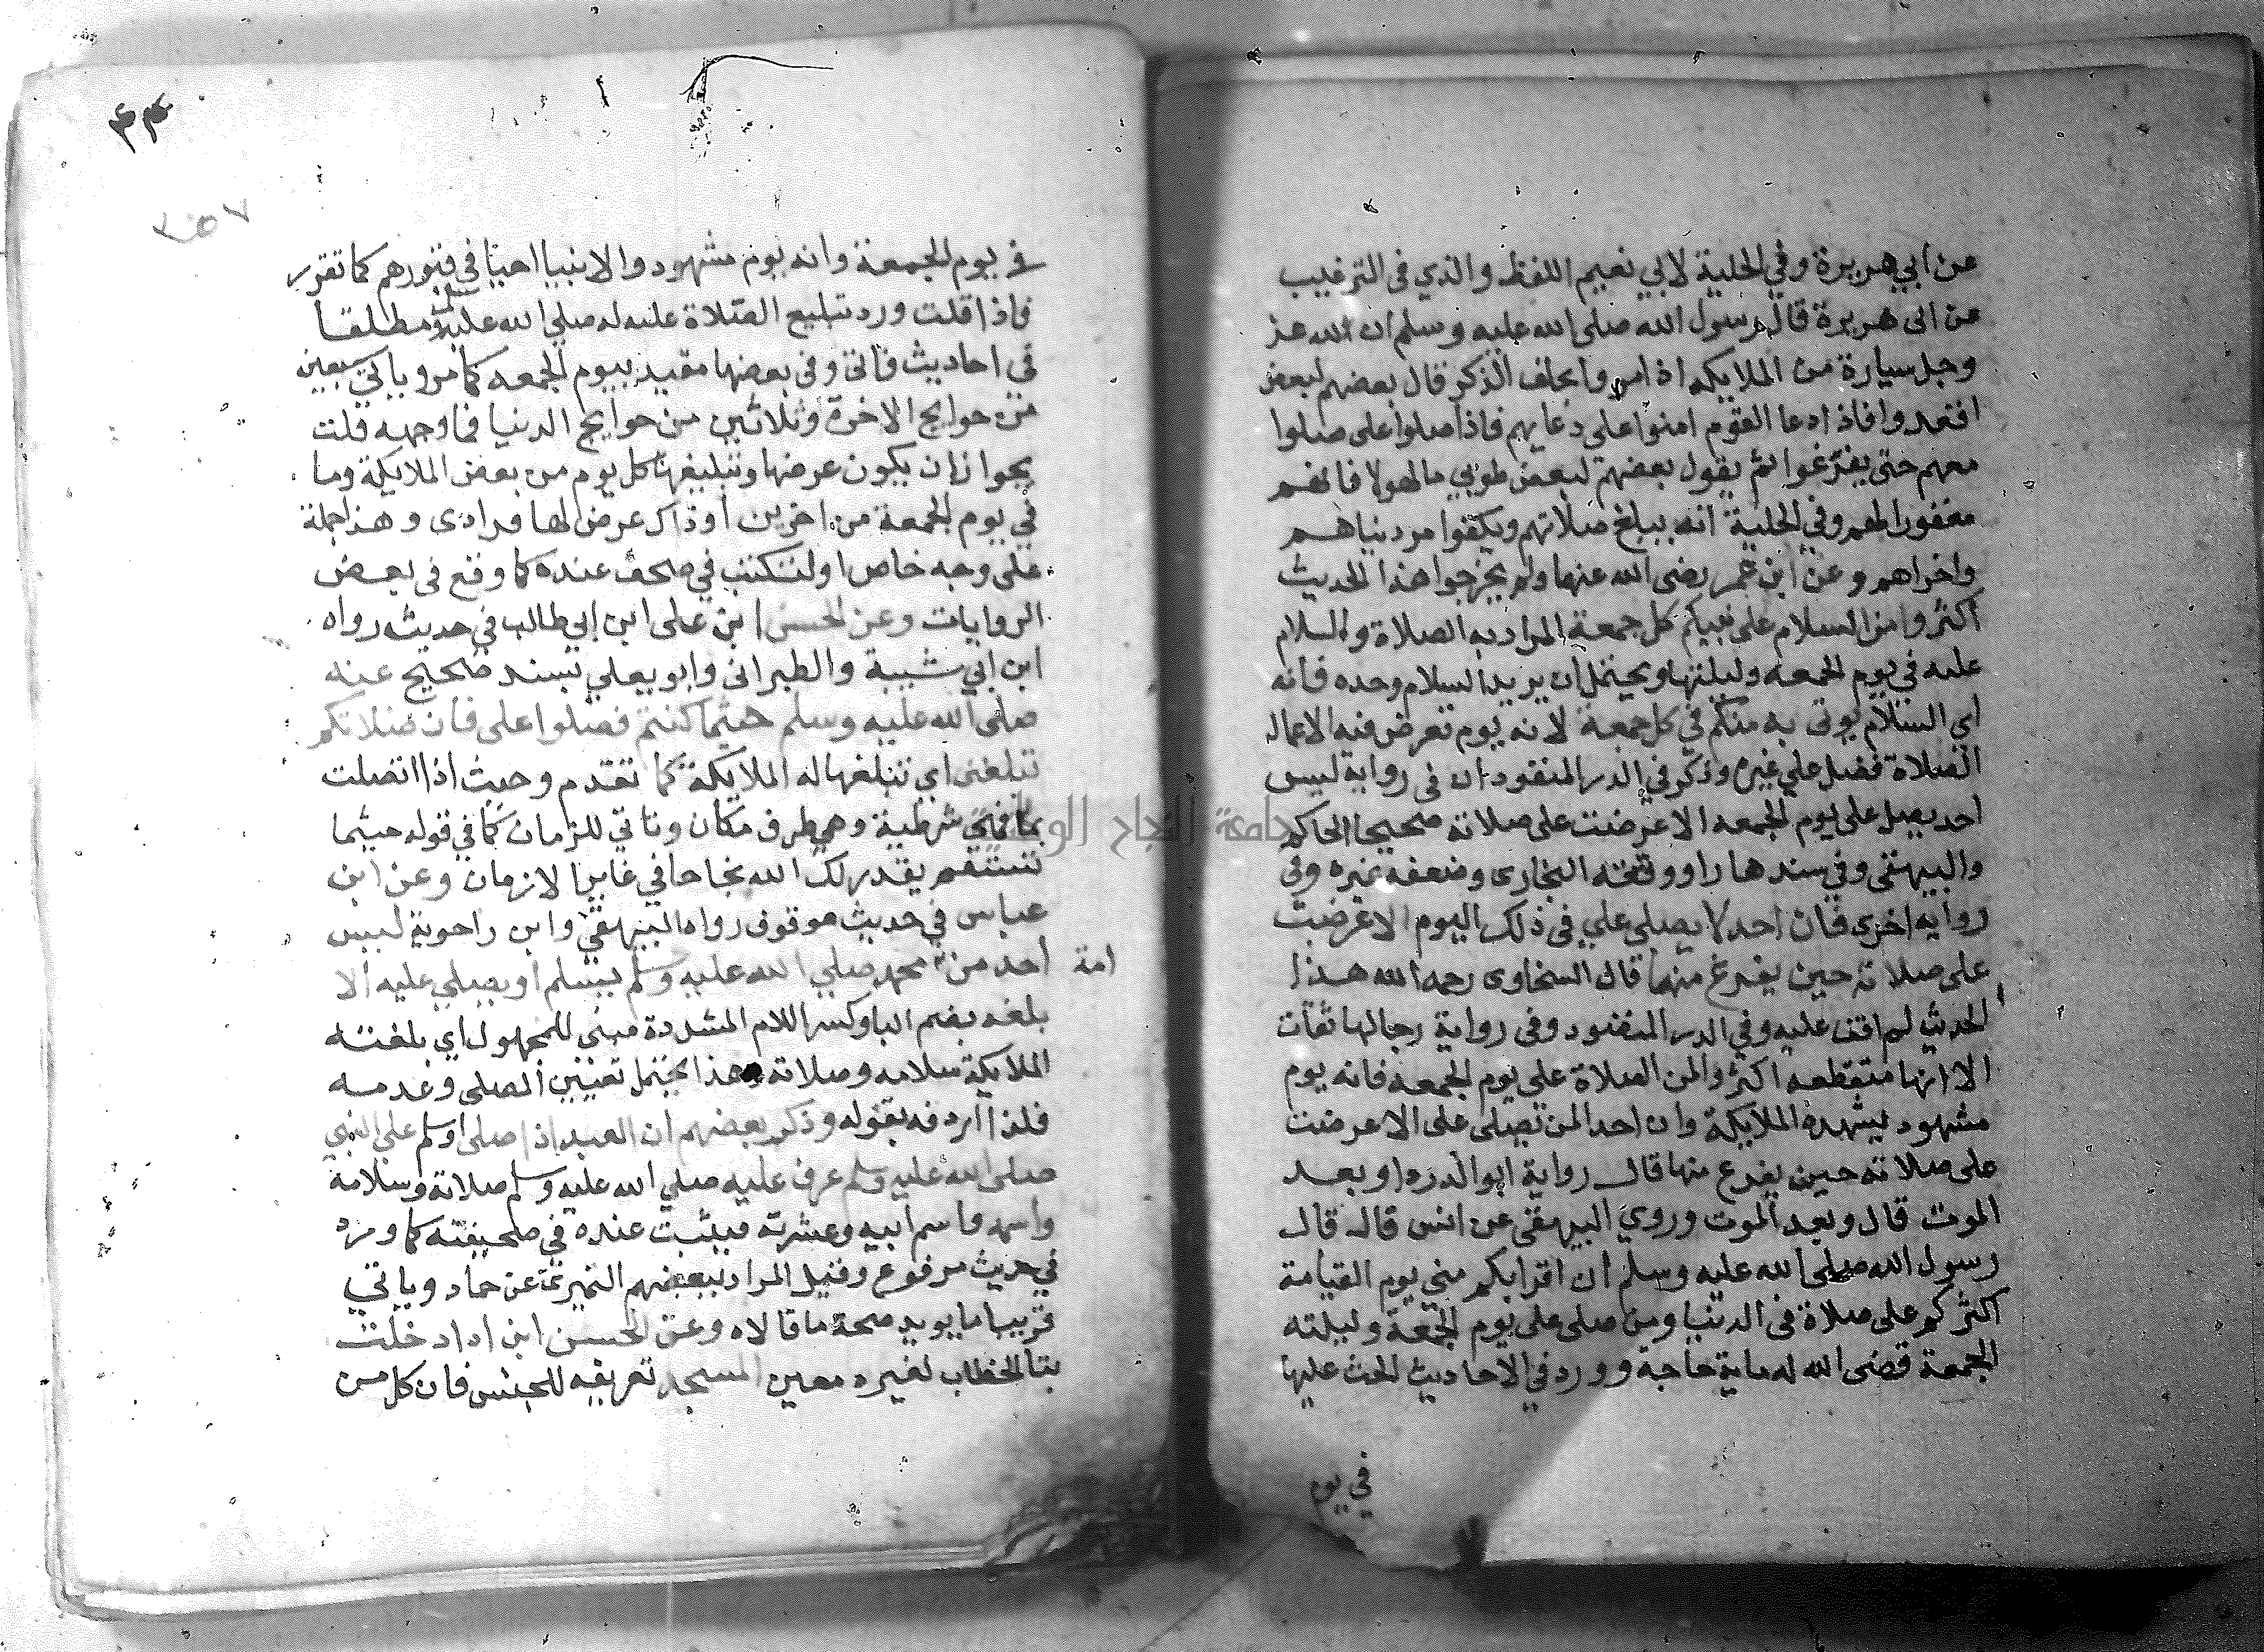 عن ابي هريرة وفي الحلية لابي نعيم اللفظ والذي في الترغيب
عن ابى هريرة قال رسول الله صلى الله عليه وسلم ان الله عز
وجل سيارة من الملايكه اذا مروا بحلف الذكر قال بعضهم لبعض
اقعدوا فاذا دعا القوم امنوا على دعايهم فاذا صلوا على صلوا
معهم حتى يفرغوا ثم يقول بعضهم لبعض طوبي مالهولا فانهم
مغفورا لهم وفي الحلية انه يبلغ صلاتهم ويكفوا مر دنياهم
واخراهم وعن ابن عمر رضى الله عنهما ولم يخرجوا هذا الحديث
اكثروا من السلام على نبيكم كل جمعة المراد به الصلاة والسلام
عليه في يوم الجمعه وليلتها ويحتمل ان يريد السلام وحده فانه
اي السلام يوتى به منكم في كل جمعة لانه يوم تعرض فيه الاعمال
الصلاة فضل علي غيره وذكر في الدر المنقود ان في رواية ليس
احد يصل على يوم الجمعه الا عرضت على صلاته صحيحا الحاكم
والبيهقى وفي سندها راو وثقه البخارى وضعفه غيره وفي
روايه اخرى فان احد لا يصلي علي في ذلك اليوم الا عرضت
على صلاته حين يفرغ منها قال السخاوى رحمه الله هذا
الحديث لم اقف عليه وفي الدر المنقود وفى رواية رجالها ثقات
الا انها متقطعه اكثروا من الصلاة علي يوم الجمعه فانه يوم
مشهود يشهده الملايكة وان احدا لن يصلى على الا عرضت
على صلاته حين يفرغ منها قال رواية ابو الدردا وبعد
الموت قال وبعد الموت وروي البيهقى عن انس قال قال
رسول الله صلى الله عليه وسلم ان اقرابكم مني يوم القيامة
اكثركم على صلاة في الدنيا ومن صلى على يوم الجمعة وليلته
الجمعة قضى الله له ماية حاجة وورد في الاحاديث الحث عليها
في يوم
٤٣
٣٥٧
في يوم الجمعة وانه يوم مشهود والانبيا احيا في قبورهم كما تقرر
فاذا قلت ورد تبليع الصلاة عليه له صلى الله عليه وسلم مطلقا
في احاديث فاتى وفى بعضها مقيد بيوم الجمعه كما مر وياتي سبعين
من حوايج الاخرة وثلاثين من حوايج الدنيا فما وجهه قلت
يجوز ان يكون عرضها وتبليغها كل يوم من بعض الملايكة وما
في يوم الجمعة من اخرين او ذاك عرض لها فرادى وهذا جملة
على وجه خاص او لتكتب في صحف عنده كما وقع في بعض
الروايات وعن الحسن ابن على ابن ابي طالب في حديثه رواه
ابن ابي شيبة والطبرانى وابو يعلي بسند صحيح عنه
صلى الله عليه وسلم حيثما كنتم فصلوا على فان صلاتكم
تبلغنى اي تبلغها له الملايكة كما تقدم وحيث اذا اتصلت
بما فهي شرطية وهي ظرف مكان وتاتي للزمان كما في قوله حيثما
تستقم يقدر لك الله نجاحا في غابر الازمان وعن ابن
عباس في حديث موقوف رواه البيهقي وابن راهوية ليس
احد من محمد صلي الله عليه وسلم يسلم او يصلي عليه الا
امة
بلغه بضم البا وكسر اللام المشددة مبنى للمجهول اي بلغته
الملايكة سلامه وصلاته وهذا يحتمل تعيين المصلى وعدمه
فلذا اردفه بقوله وذكر بعضهم ان العبد اذا صلى او سلم على النبي
صلى الله عليه وسلم عرف عليه صلي الله عليه وسلم صلاته وسلامه
واسمه واسم ابيه وعشرته فيثبت عنده في صحيفته كما ورد
في حديث مرفوع وقيل المراد ببعضهم النميرى عن حماد وياتي
قريبا ما يويد صحة ما قالاه وعن الحسن ابن اذا دخلت
بتا الخطاب لغيره معين المسجد تعريفه للجنس فان كل من